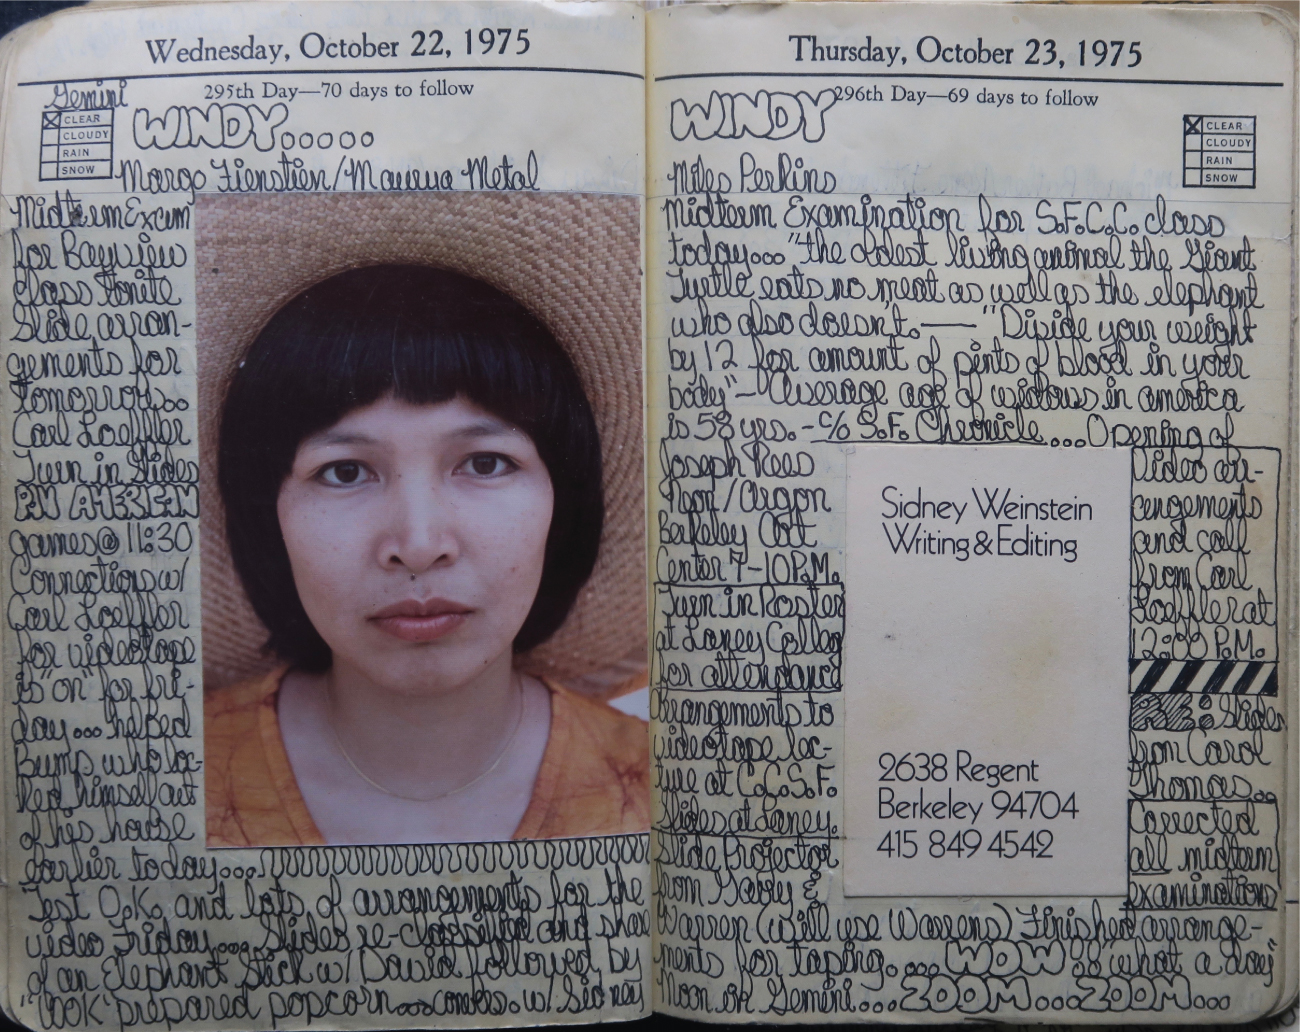 Wednesday, October 22, 1975
Gemini
295th Day—70 days to follow
CLEAR
CLOUDY
RAIN
SNOW
WINDY.....
Margo Fienstien/Maurua Metal
Midterm Exam
for Bayview
class tonite
Slide arran-
gements for
tomorrow..
Carl Loeffler
Turn in Slides
PAN AMERICAN
games@ 11:30
Connections w/
Carl Loeffler
for videotape
is "on" for fri-
day... helped
Bump who loc-
ked himself out
of his house
earlier today...
Test O.K. and lots of arrangements for the
video Friday... Slides re-classified and share
of an Elephant Stick w/ David followed by
"WOK" prepared popcorn...combs. w/ Sidney
Thursday, October 23, 1975
296th Day—69 days to follow
WINDY
CLEAR
CLOUDY
RAIN
SNOW
Miles Perkins
Midterm Examination for S.F.C.C. class
today... "the oldest living animal the Giant
Turtle eats no meat as well as the elephant
who also doesn't.—"Divide your weight
by 12 for amount of pints of blood in your
body"—"Average age of widows in america
is 58 yrs.- c/o S.F. Chronicle...Opening of
Joseph Rees
Neon/Argon
Berkeley Art
Center 7-10P.M.
Turn in Roster
at Laney College
for attendance
Arrangements to
videotape lec-
ture at C.C.S.F.
Slides at Laney.
Slide Projector
from Harry &
Sidney Weinstein
Writing & Editing
2638 Regent
Berkeley 94704
415 849 4542
Video arr-
angements
and call
from Carl
Loeffler at
12:00 P.M.
RE: Slides
from Carol
Thomas..
Corrected
all midterm
examinations
Warren (will use Warrens) Finished arrange-
ments for taping.... WOW!! what a day"
Moon in Gemini...ZOOM...ZOOM...